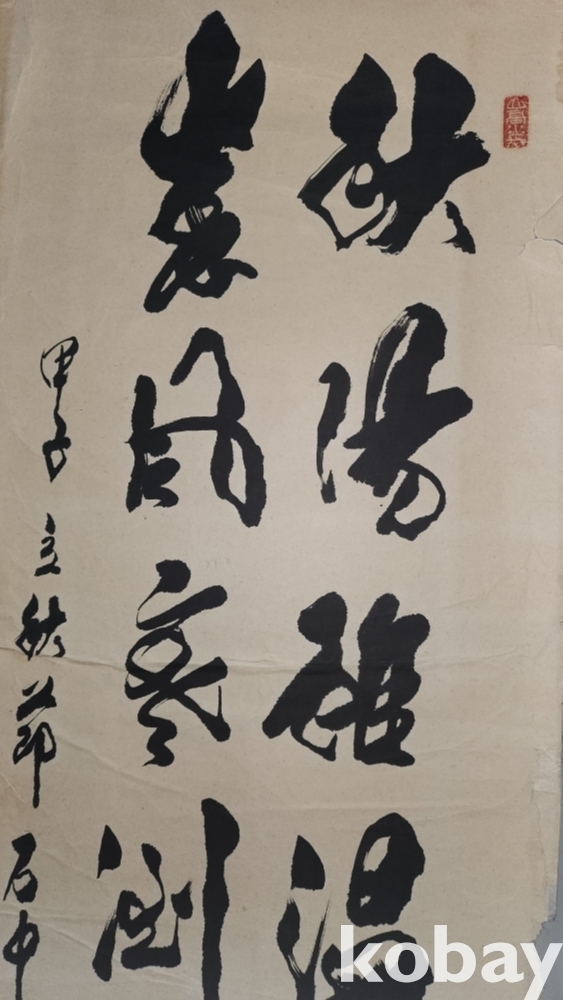 秋陽雖温
風寒
甲子立秋節石中
kobay